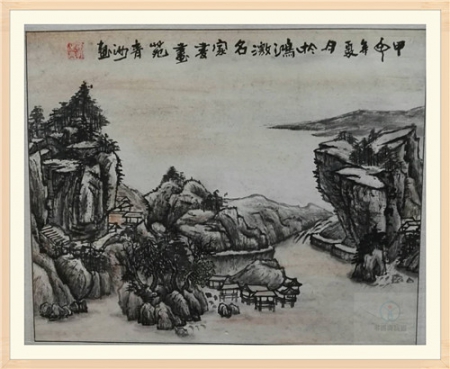 甲申年夏月於鴻名家書畫苑青洲畫